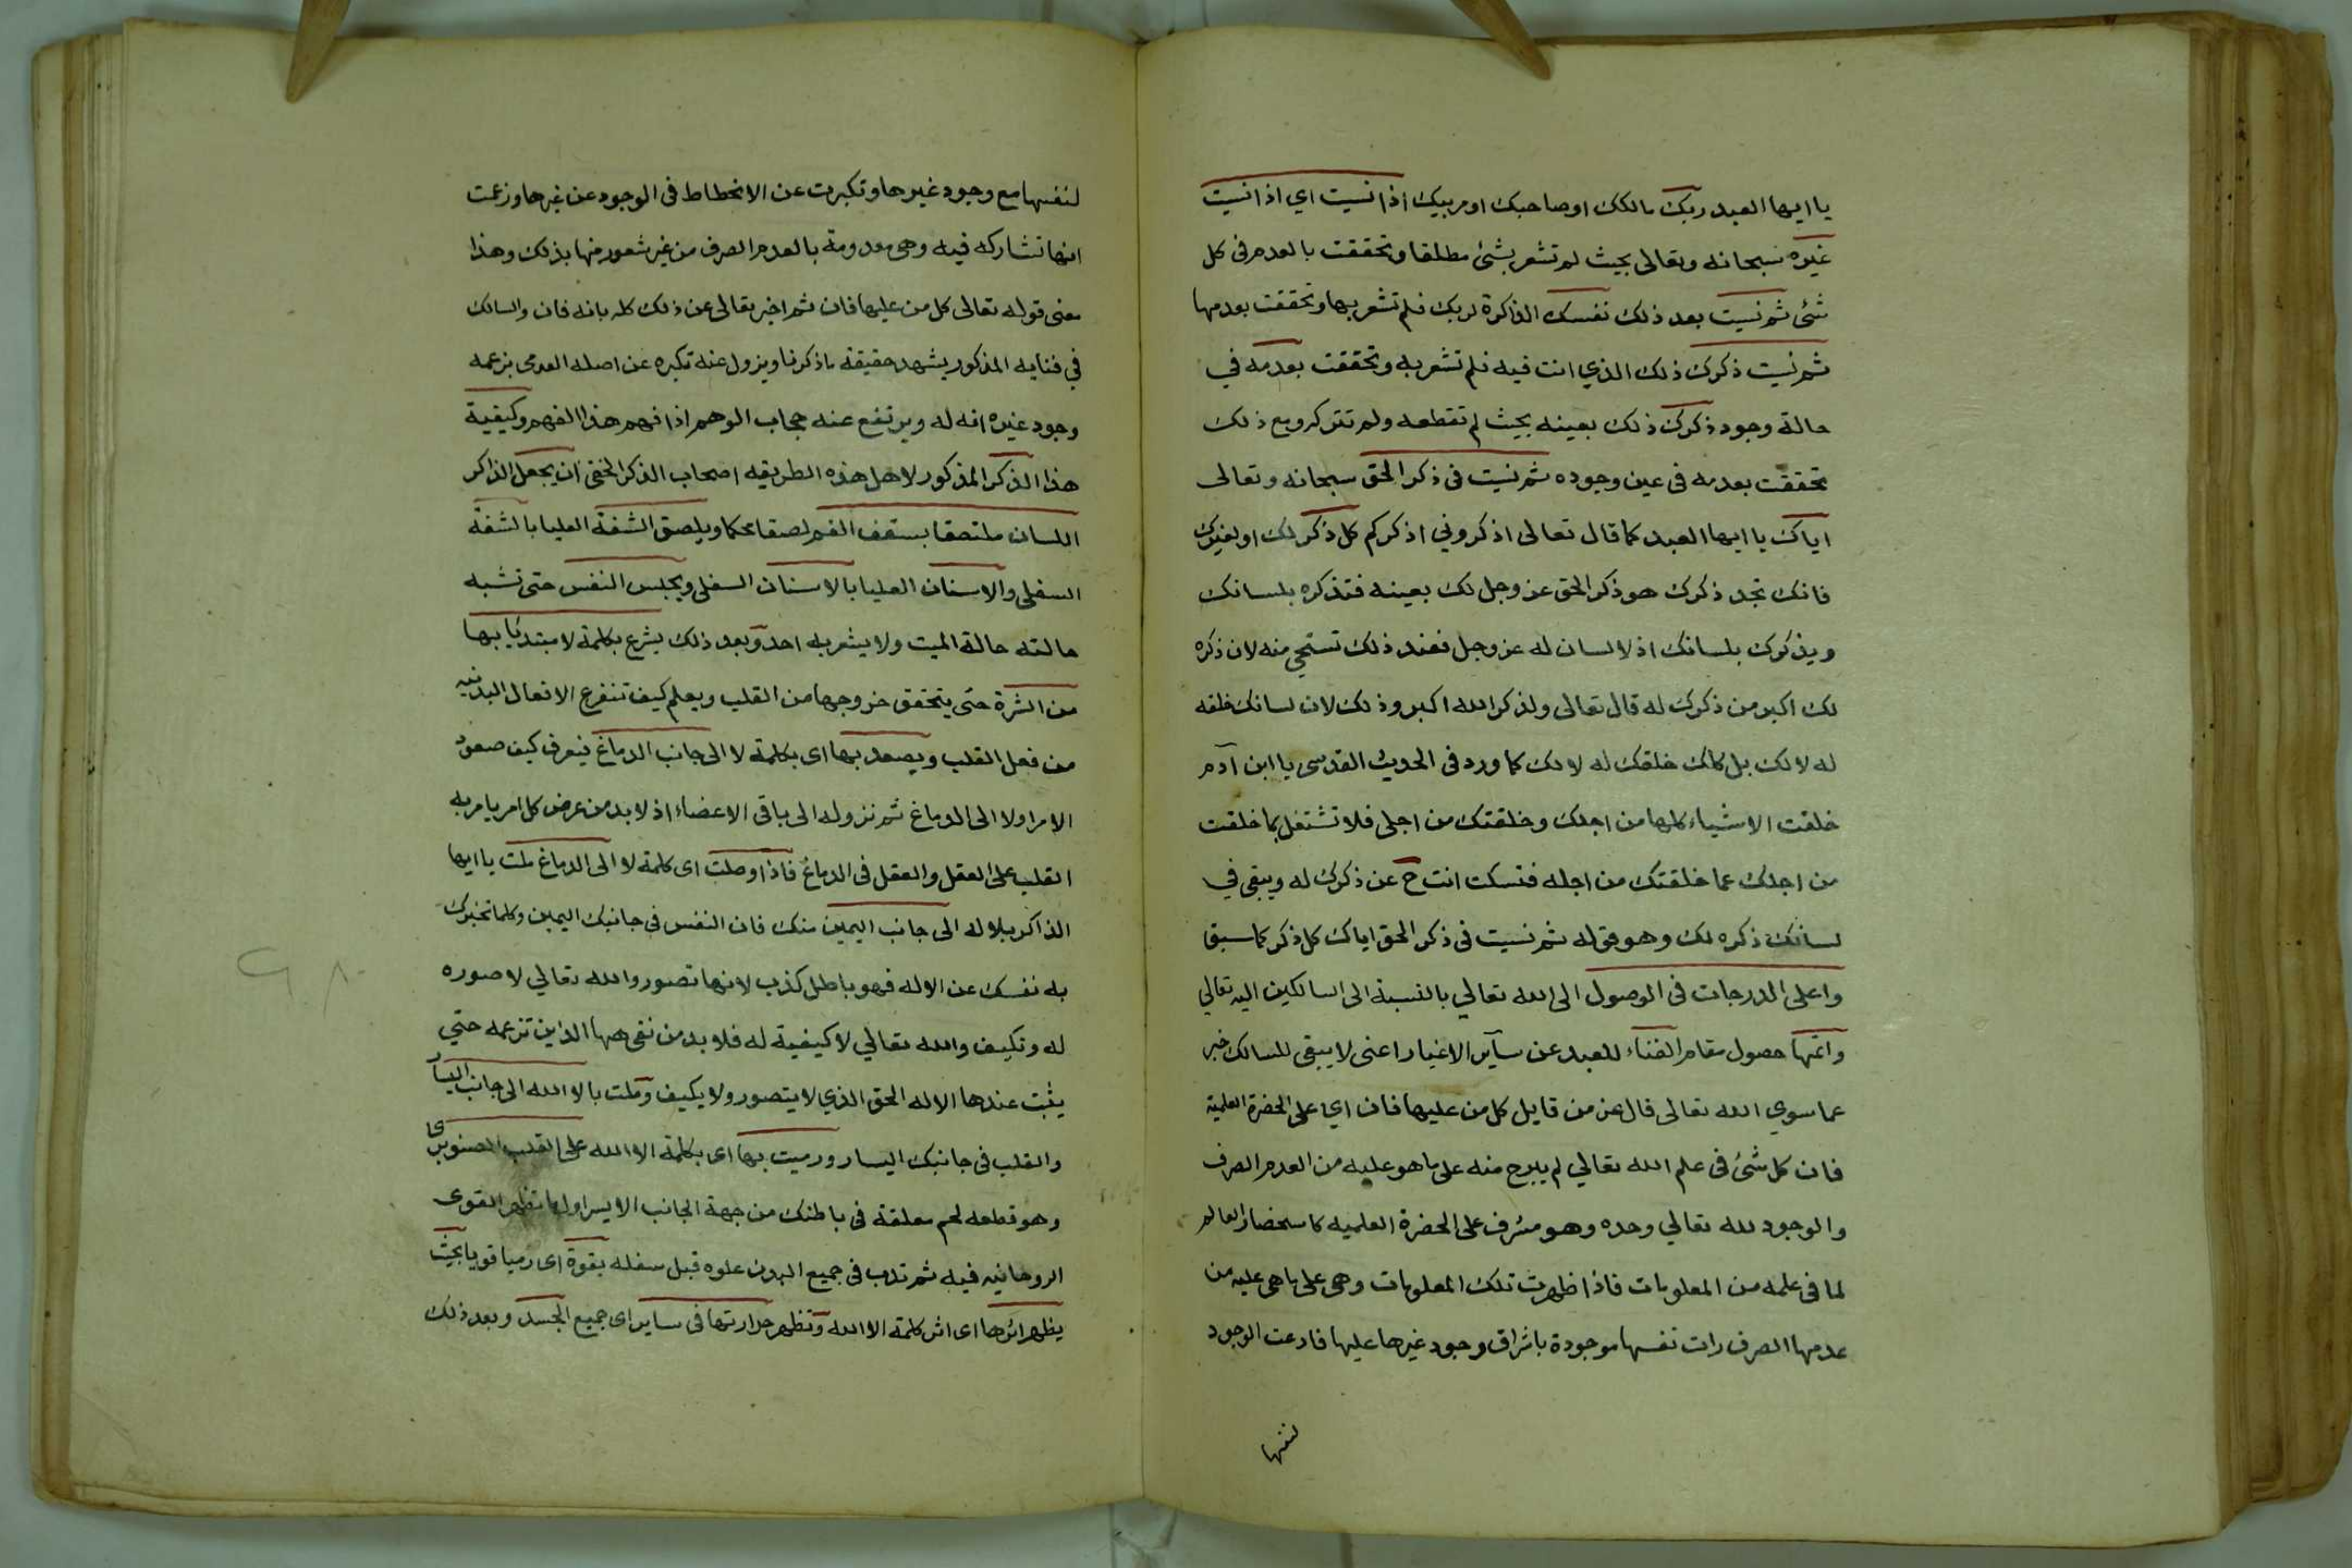 يا ايها العبد ربك مالكك اوصاحبك اومربيك اذا نسيت اي اذا نسيت
غيره سبحانه وتعالى بحيث لم تشعر بشئ مطلقا وتحققت بالعدم في كل
شئ ثم نسيت بعد ذلك نفسك الذاكرة لربك فلم تشعر بها وتحققت بعدمها
ثم نسيت ذكرك ذلك الذي انت فيه فلم تشعر به وتحققت بعدمه في
حالة وجود ذكرك ذلك بعينه بحيث لم تقطعه ولم تتركه ومع ذلك
تحققت بعدمه في عين وجوده ثم نسيت في ذكر الحق سبحانه وتعالى
اياك يا ايها العبد كما قال تعالى اذكروني اذكركم كل ذكر لك او لغيرك
فانك تجد ذكرك هو ذكر الحق عز وجل لك بعينه فتذكره بلسانك
ويذكرك بلسانك اذ لا لسان له عز وجل فعند ذلك تستحي منه لان ذكره
لك اكبر من ذكرك له قال تعالى ولذكر الله اكبر وذلك لان لسانك خلقه
له لا لك بل كلك خلقك له لا لك كما ورد في الحديث القدسي يا ابن آدم
خلقت الاشياء كلها من اجلك وخلقتك من اجلي فلا تشتغل بما خلقت
من اجلك عما خلقتك من اجله فتسكت انت ح عن ذكرك له ويبقى في
لسانك ذكره لك وهو قوله ثم نسيت في ذكر الحق اياك كل ذكر كما سبق
واعلى الدرجات في الوصول الى الله تعالي بالنسبة الى السالكين اليه تعالي
واتمها حصول مقام الفناء للعبد عن سآير الاغيار اعني لا يبقى للسالك خبر
عما سوي الله تعالى قال عز من قايل كل من عليها فان اي على الحضرة العلمية
فان كل شئ في علم الله تعالي لم يبرح منه على ما هو عليه من العدم الصرف
والوجود لله تعالي وحده وهو مشرف على الحضرة العلميه كاستحضار العالم
لما في علمه من المعلومات فاذا ظهرت تلك المعلومات وهي على ما هي عليه من
عدمها الصرف رات نفسها موجودة باشراق وجود غيرها عليها فادعت الوجود
لنفسها
لنفسها مع وجود غيرها وتكبرت عن الانحطاط في الوجود عن غيرها وزعمت
انها تشاركه فيه وهي معدومة بالعدم الصرف من غير شعور منها بذلك وهذا
معنى قوله تعالى كل من عليها فان ثم اخبر تعالى عن ذلك كله بانه فان والسالك
في فنايه المذكور يشهد حقيقة ما ذكرنا ويزول عنه تكبره عن اصله العدمى بزعمه
وجود غيره انه له ويرتفع عنه حجاب الوهم اذا فهم هذا الفهم وكيفية
هذا الذكر المذكور لاهل هذه الطريقه اصحاب الذكر الخفي ان يجعل الذاكر
اللسان ملتصقا بسقف الفم لصقا محكما ويلصق الشفة العليا بالشفة
السفلى والاسنان العليا بالاسنان السفلى ويحبس النفس حتى تشبه
حالته حالة الميت ولا يشعر به احد وبعد ذلك يشرع بكلمة لا مبتديًا بها
من السرة حتى يتحقق خروجها من القلب ويعلم كيف تتفرع الافعال البدنيه
من فعل القلب ويصعد بها اى بكلمة لا الى جانب الدماغ فيعرف كيف صعود
الامر اولا الى الدماغ ثم نزوله الى باقى الاعضاء اذ لا بد من عرض كل امر يامر به
القلب على العقل والعقل في الدماغ فاذا وصلت اى كلمة لا الى الدماغ ملت يا ايها
الذاكر بلا اله الى جانب اليمين منك فان النفس في جانبك اليمين وكلما تخبرك
به نفسك عن الاله فهو باطل كذب لانها تصور والله تعالي لا صوره
له وتكيف والله تعالي لا كيفية له فلا بد من نفى الهها الذي تزعمه حتي
يثبت عندها الاله الحق الذي لا يتصور ولا يكيف وملت بالا الله الى جانب اليسار
والقلب في جانبك اليسار ورميت بها اى بكلمة الا الله على القلب الصنوبرى
وهو قطعه لحم معلقة في باطنك من جهة الجانب الايسر اولها تظهر القوى
الروحانيه فيه ثم تدب في جميع البدن علوه قبل سفله بقوة اى رميا قويا بحيث
يظهر اثرها اى اثر كلمة الا الله وتظهر حرارتها في ساير اى جميع الجسد وبعد ذلك